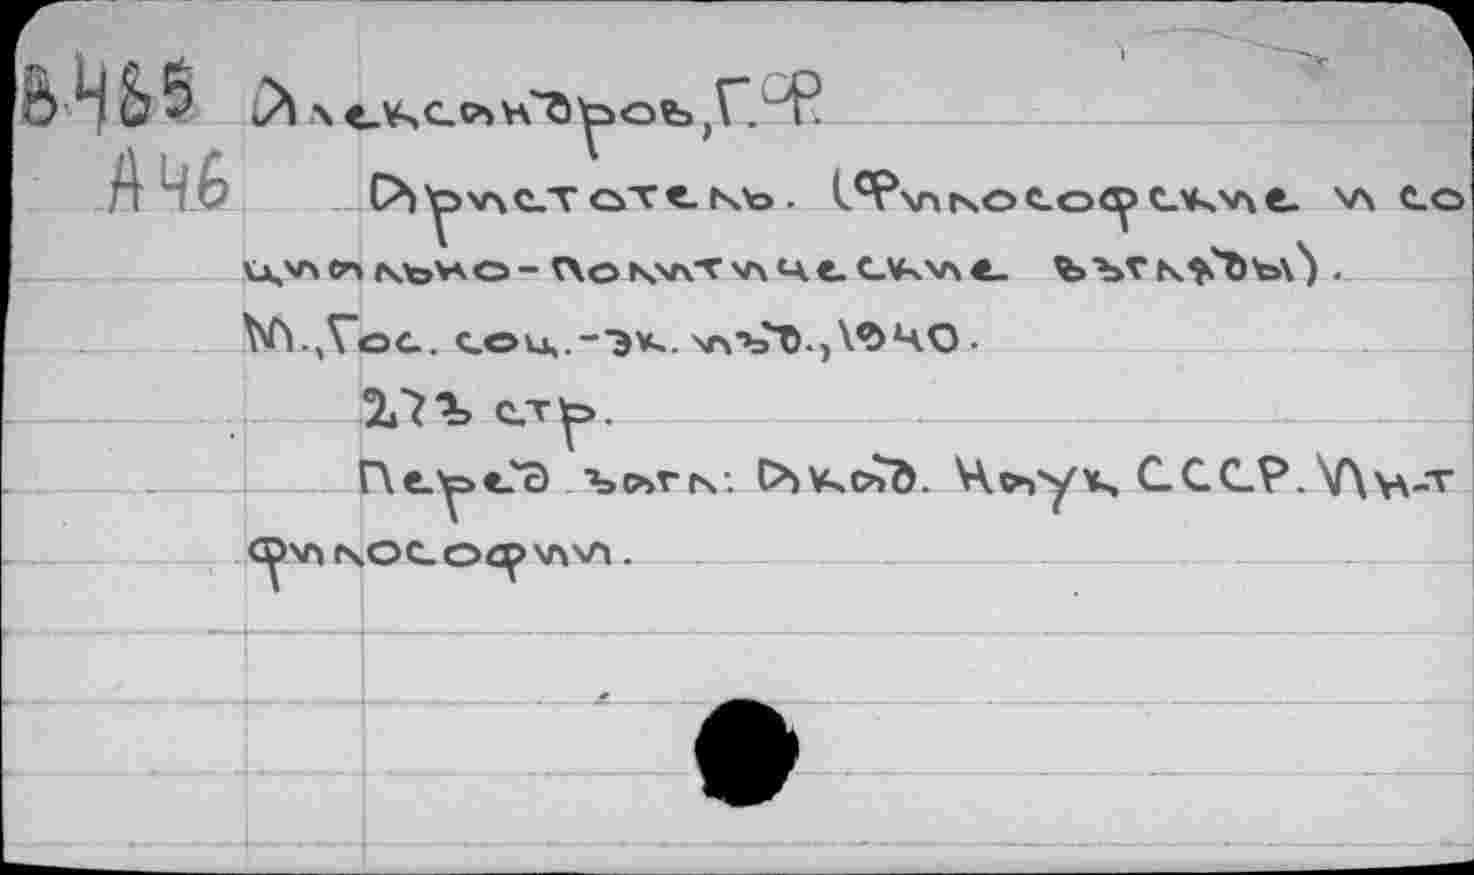 В485 Александров, Г.Ф.
А46 Аристотель. (Философские и со
циально-политические взгляды).
М., Гос. соц.-эк. изд., 1940.
273 стр.
Перед загл: Акад. Наук СССР. Ин-т
философии.